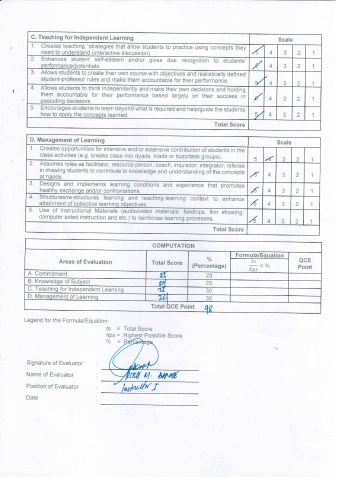 C. Teaching for Independent Learning Scale
1. Creates teaching strategies that allow students to practice using concepts they
need to understand (interactive discussion). 5 4 3 2 1
2. Enhances student self-esteem and/or gives due recognition to students'
performance/potentials. 5 4 3 2 1
3. Allows students to create their own course with objectives and realistically defined
student-professor rules and make them accountable for their performance. 5 4 3 2 1
4. Allows students to think independently and make their own decisions and holding
them accountable for their performance based largely on their success in
executing decisions. 5 4 3 2 1
5. Encourages students to learn beyond what is required and help/guide the students
how to apply the concepts learned. 5 4 3 2 1
Total Score
D. Management of Learning Scale
1. Creates opportunities for intensive and/or extensive contribution of students in the
class activities (e.g. breaks class into dyads, triads or buzz/task groups). 5 4 3 2 1
2. Assumes roles as facilitator, resource person, coach, inquisitor, integrator, referee
in drawing students to contribute to knowledge and understanding of the concepts
at hands. 5 4 3 2 1
3. Designs and implements learning conditions and experience that promotes
healthy exchange and/or confrontations. 5 4 3 2 1
4. Structures/re-structures learning and teaching-learning context to enhance
attainment of collective learning objectives. 5 4 3 2 1
5. Use of Instructional Materials (audio/video materials, fieldtrips, film showing,
computer aided instruction and etc.) to reinforces learning processes. 5 4 3 2 1
Total Score
COMPUTATION
Areas of Evaluation Total Score % (Percentage) Formula/Equation ts/hps x % QCE Point
A. Commitment 20
B. Knowledge of Subject 20
C. Teaching for Independent Learning 30
D. Management of Learning 24 30
Total QCE Point 98
Legend for the Formula/Equation:
ts = Total Score
hps = Highest Possible Score
% = Percentage
Signature of Evaluator
Name of Evaluator
Position of Evaluator Instructor I
Date